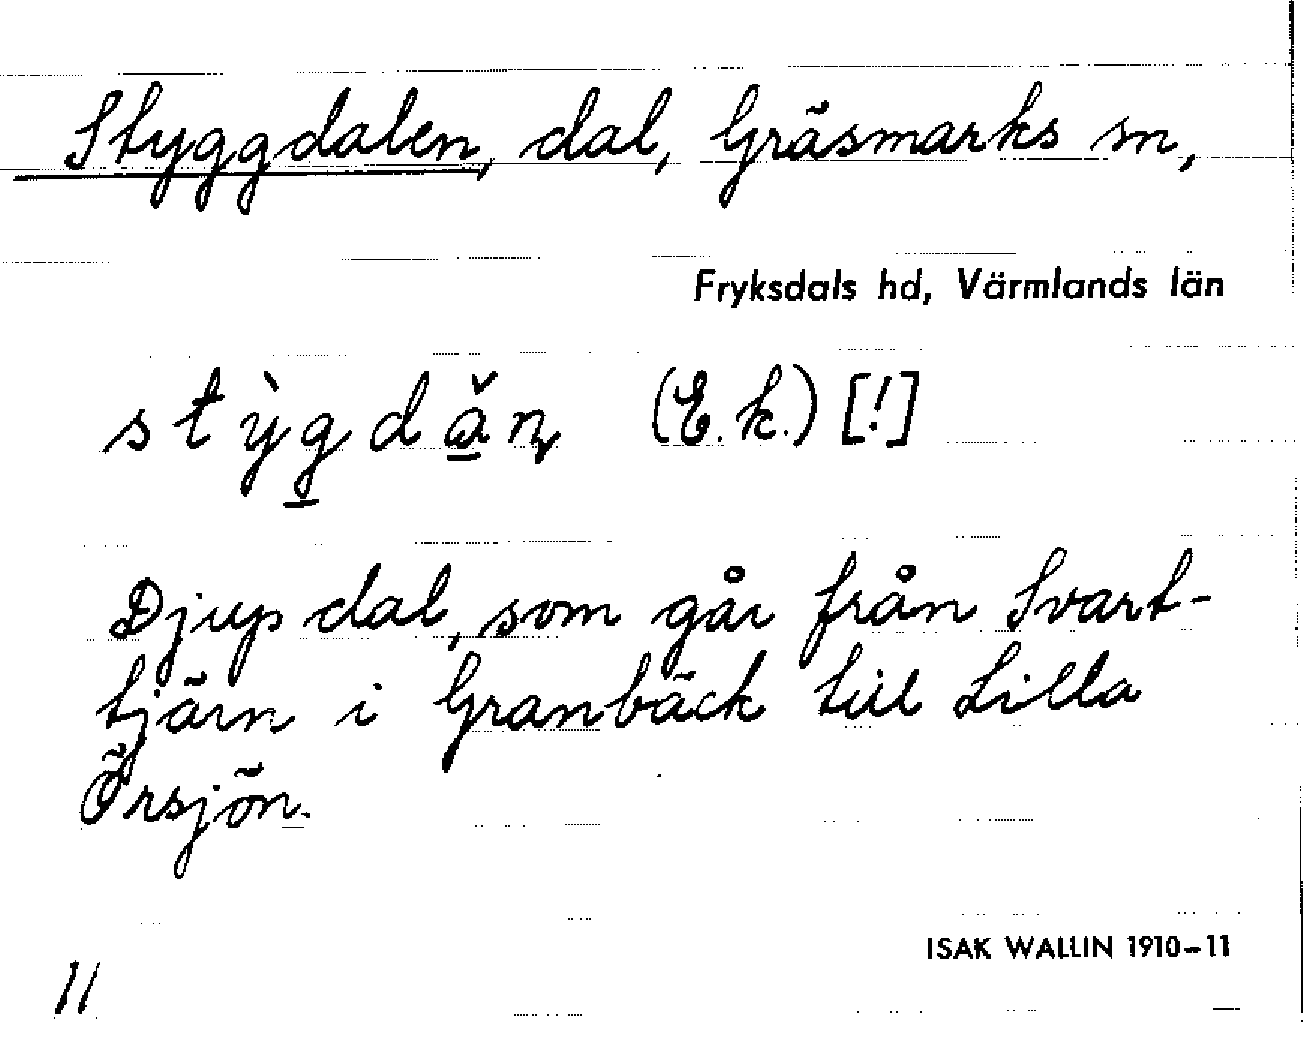 Styggdalen, dal, Gräsmarks sn,
Fryksdals hd, Värmlands län
stỳg̲dǎ̲ņ (E.k.) [!]
Djup dal, som går från Svart-
tjärn i Granbäck till Lilla
Örsjön.
ISAK WALLIN 1910-11
11